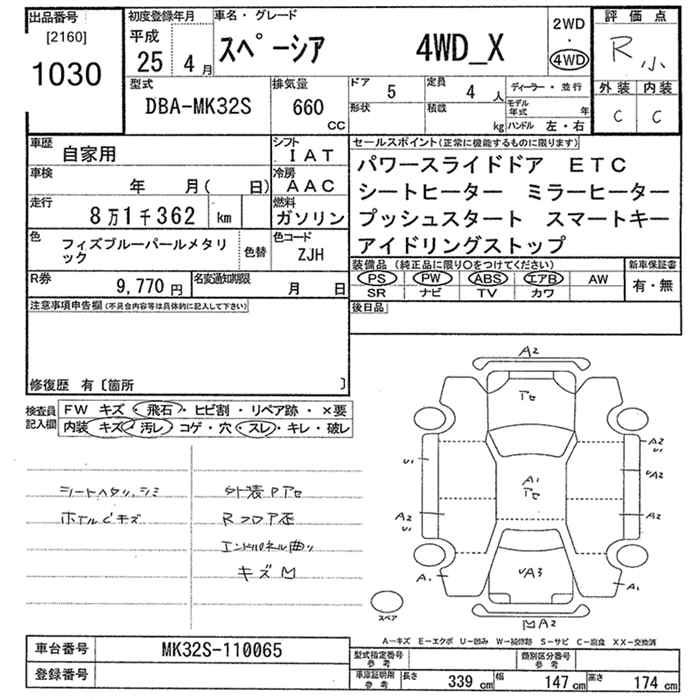 出品番号
[2160]
1030
初度登録年月
平成
25 4月
車名・グレード
スペーシア 4WD_X
2WD
・
4WD
評価点
R 小
外装 内装
C C
型式
DBA-MK32S
排気量
660
CC
ドア 5
定員 4 人
形状
積載 kg
ディーラー・並行
モデル年式 年
ハンドル 左・右
車歴
自家用
シフト
IAT
車検
年 月( 日)
冷房
AAC
走行
8万1千362 km
燃料
ガソリン
色
フィズブルーパールメタリック
色替
色コード
ZJH
R券
9,770 円
名変通知期限
月 日
セールスポイント(正常に機能するものに限ります)
パワースライドドア ETC
シートヒーター ミラーヒーター
プッシュスタート スマートキー
アイドリングストップ
装備品 (純正品に限り○をつけてください)
PS PW ABS エアB AW
SR ナビ TV カワ
新車保証書
有・無
後日品
注意事項申告欄(不具合内容等は具体的に記入して下さい)
修復歴 有〔箇所 〕
検査員
記入欄
FW キズ・飛石・ヒビ割・リペア跡・×要
内装 キズ・汚レ・コゲ・穴・スレ・キレ・破レ
シートヘタリ、シミ
ホイルCキズ
外装Pアセ
Rフロア歪
エンドパネル曲り
キズM
A2
アセ
U1
A2
U1
A1
アセ
A2
U1
UA2
A2
A1
UA3
A1
MA2
スペア
A-キズ E-エクボ U-凹み W-補修跡 S-サビ C-腐食 XX-交換済
車台番号
MK32S-110065
登録番号
型式指定番号
参考
類別区分番号
参考
車庫証明用
参考
長さ 339 cm 幅 147 cm 高さ 174 cm